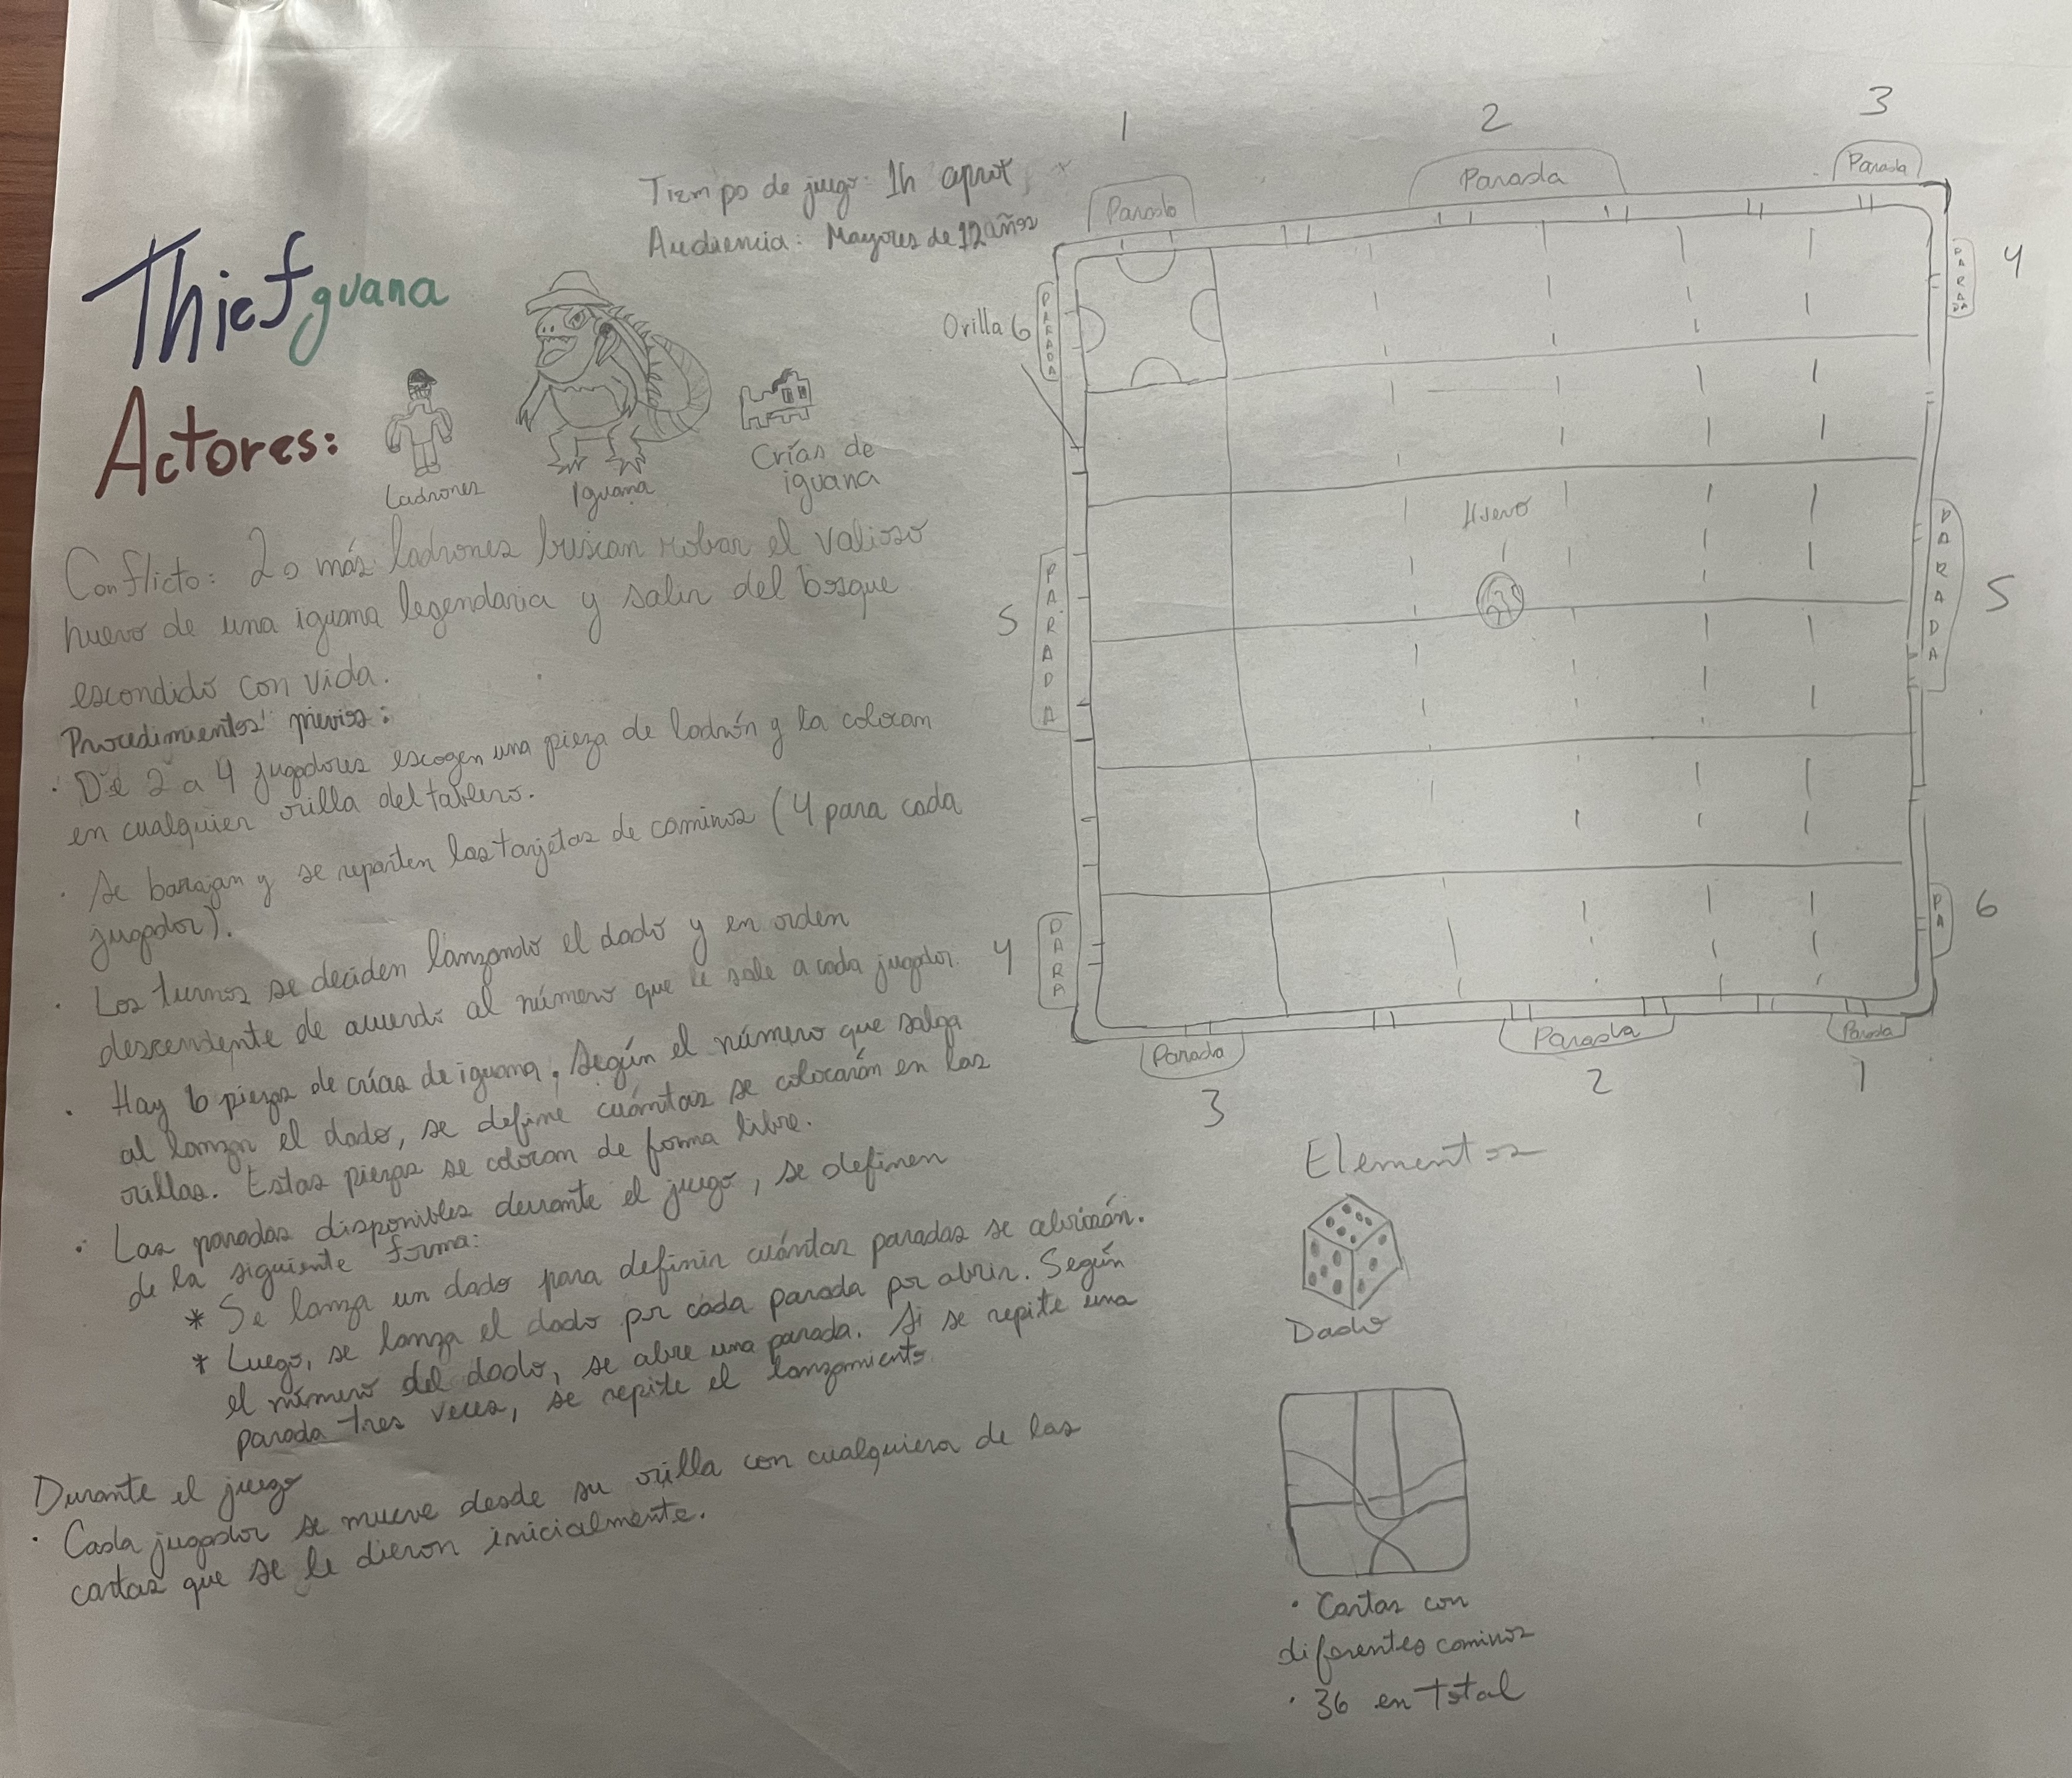 Tiempo de juego: 1h aprox
Audiencia: Mayores de 12 años
Thiefguana
Actores:
Ladrones
Iguana
Crías de
iguana
Conflicto: 2 o más ladrones buscan robar el valioso
huevo de una iguana legendaria y salir del bosque
escondido con vida.
Procedimientos previos:
· De 2 a 4 jugadores escogen una pieza de ladrón y la colocan
en cualquier orilla del tablero.
· Se barajan y se reparten las tarjetas de caminos (4 para cada
jugador).
· Los turnos se deciden lanzando el dado y en orden
descendente de acuerdo al número que le sale a cada jugador.
· Hay 6 piezas de crías de iguana. Según el número que salga
al lanzar el dado, se define cuántas se colocarán en las
orillas. Estas piezas se colocan de forma libre.
· Las paradas disponibles durante el juego, se definen
de la siguiente forma:
* Se lanza un dado para definir cuántas paradas se abrirán.
* Luego, se lanza el dado por cada parada por abrir. Según
el número del dado, se abre una parada. Si se repite una
parada tres veces, se repite el lanzamiento.
Durante el juego
· Cada jugador se mueve desde su orilla con cualquiera de las
cartas que se le dieron inicialmente.
1
2
3
Parada
Parada
Parada
Orilla
6
PARADA
PARADA
4
Huevo
5
PARADA
PARADA
5
4
PARA
PA
6
Parada
Parada
Parada
3
2
1
Elementos
Dado
· Cartas con
diferentes caminos
· 36 en total